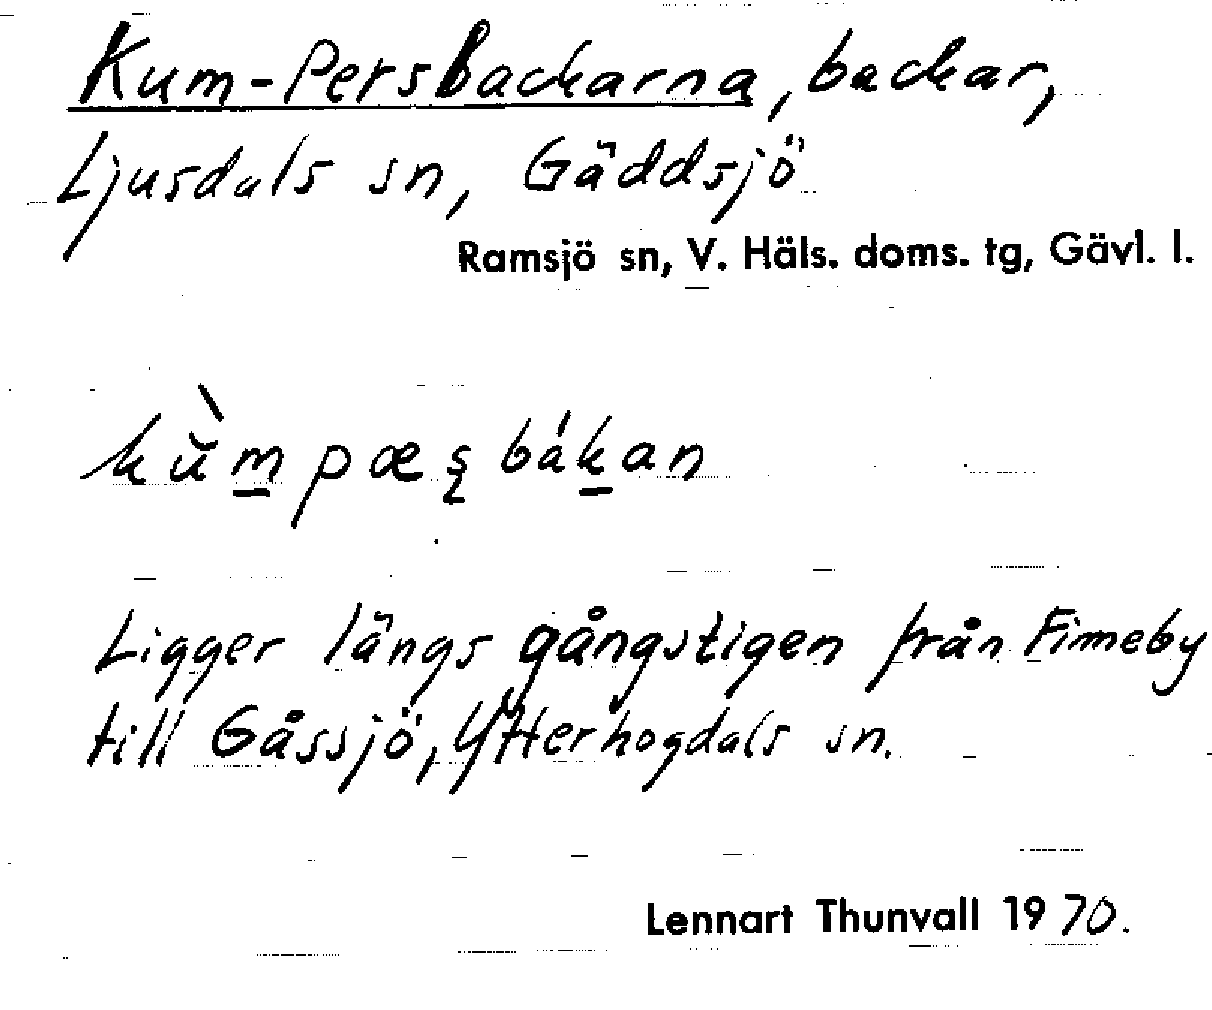 Kum-Persbackarna, backar,
Ljusdals sn, Gäddsjö
Ramsjö sn, V. Häls. doms. tg, Gävl. l.
kŭ̀m̱pæʂbáḵan
Ligger längs gångstigen från Finneby
till Gåssjö, Ytterhogdals sn.
Lennart Thunvall 1970.